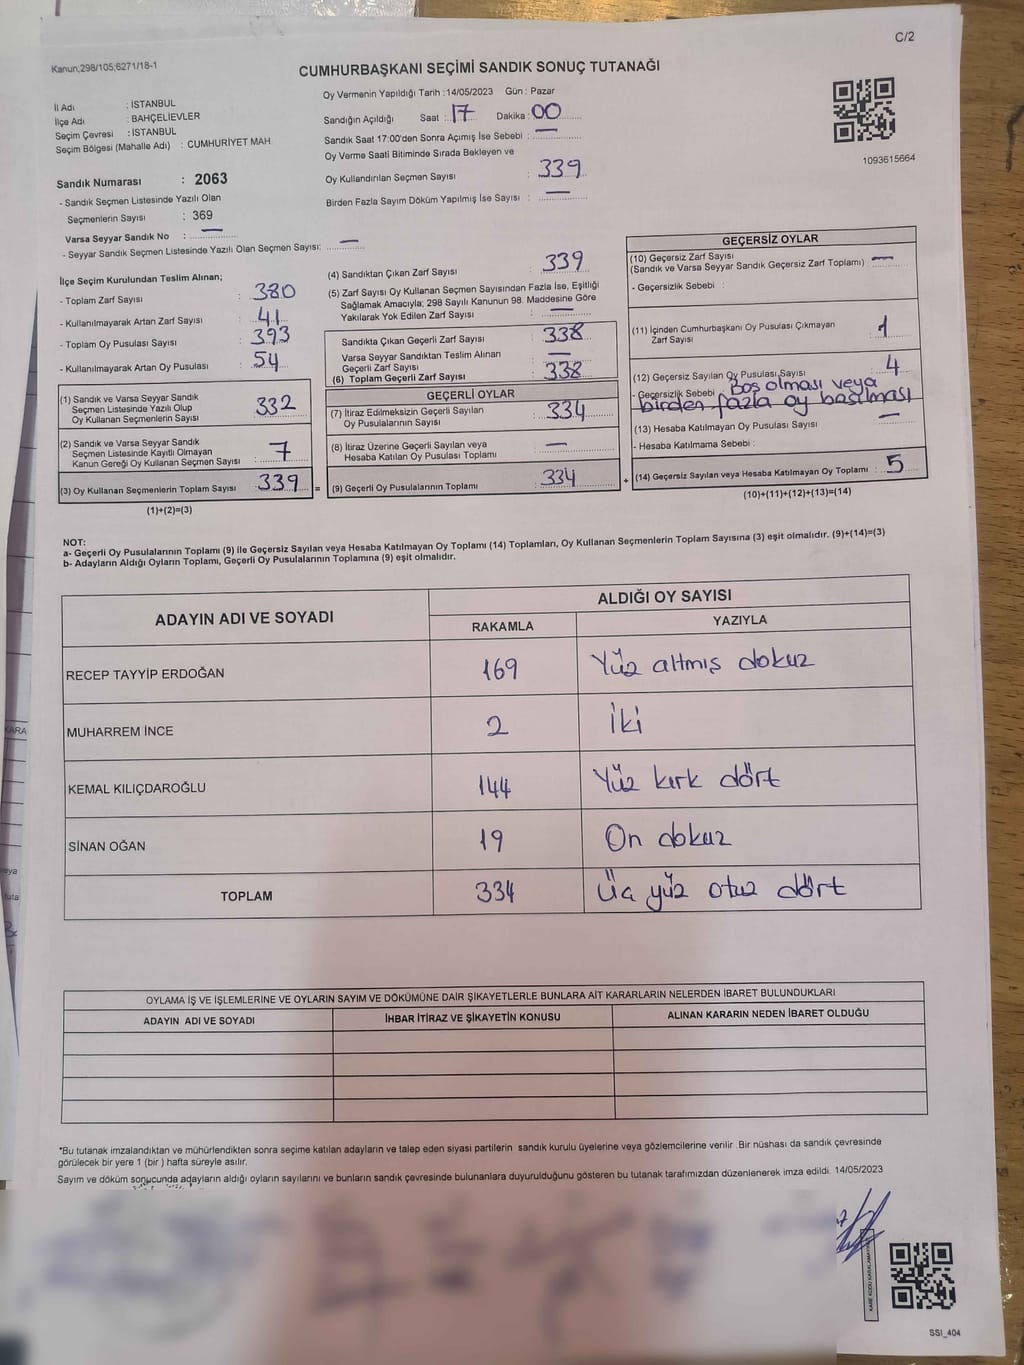 C/2
Kanun,298/105;6271/18-1
CUMHURBAŞKANI SEÇİMİ SANDIK SONUÇ TUTANAĞI
İl Adı : İSTANBUL
İlçe Adı : BAHÇELİEVLER
Seçim Çevresi : İSTANBUL
Seçim Bölgesi (Mahalle Adı) : CUMHURİYET MAH.
Sandık Numarası : 2063
- Sandık Seçmen Listesinde Yazılı Olan
Seçmenlerin Sayısı : 369
Varsa Seyyar Sandık No : —
- Seyyar Sandık Seçmen Listesinde Yazılı Olan Seçmen Sayısı: —
Oy Vermenin Yapıldığı Tarih :14/05/2023 Gün : Pazar
Sandığın Açıldığı Saat : 17 Dakika : 00
Sandık Saat 17:00'den Sonra Açımış İse Sebebi : —
Oy Verme Saati Bitiminde Sırada Bekleyen ve
Oy Kullandırılan Seçmen Sayısı : 339
Birden Fazla Sayım Döküm Yapılmış İse Sayısı : —
1093615664
İlçe Seçim Kurulundan Teslim Alınan;
- Toplam Zarf Sayısı : 380
- Kullanılmayarak Artan Zarf Sayısı : 41
- Toplam Oy Pusulası Sayısı : 393
- Kullanılmayarak Artan Oy Pusulası : 54
(1) Sandık ve Varsa Seyyar Sandık
Seçmen Listesinde Yazılı Olup
Oy Kullanan Seçmenlerin Sayısı : 332
(2) Sandık ve Varsa Seyyar Sandık
Seçmen Listesinde Kayıtlı Olmayan
Kanun Gereği Oy Kullanan Seçmen Sayısı : 7
(3) Oy Kullanan Seçmenlerin Toplam Sayısı : 339 =
(1)+(2)=(3)
(4) Sandıktan Çıkan Zarf Sayısı : 339
(5) Zarf Sayısı Oy Kullanan Seçmen Sayısından Fazla İse, Eşitliği
Sağlamak Amacıyla; 298 Sayılı Kanunun 98. Maddesine Göre
Yakılarak Yok Edilen Zarf Sayısı : —
Sandıkta Çıkan Geçerli Zarf Sayısı : 338
Varsa Seyyar Sandıktan Teslim Alınan
Geçerli Zarf Sayısı : —
(6) Toplam Geçerli Zarf Sayısı : 338
GEÇERLİ OYLAR
(7) İtiraz Edilmeksizin Geçerli Sayılan
Oy Pusulalarının Sayısı : 334
(8) İtiraz Üzerine Geçerli Sayılan veya
Hesaba Katılan Oy Pusulası Toplamı : —
(9) Geçerli Oy Pusulalarının Toplamı : 334 +
GEÇERSİZ OYLAR
(10) Geçersiz Zarf Sayısı
(Sandık ve Varsa Seyyar Sandık Geçersiz Zarf Toplamı) : —
- Geçersizlik Sebebi :
(11) İçinden Cumhurbaşkanı Oy Pusulası Çıkmayan
Zarf Sayısı : 1
(12) Geçersiz Sayılan Oy Pusulası Sayısı : 4
- Geçersizlik Sebebi : Boş olması veya
birden fazla oy basılması
(13) Hesaba Katılmayan Oy Pusulası Sayısı : —
- Hesaba Katılmama Sebebi :
(14) Geçersiz Sayılan veya Hesaba Katılmayan Oy Toplamı : 5
(10)+(11)+(12)+(13)=(14)
NOT:
a- Geçerli Oy Pusulalarının Toplamı (9) ile Geçersiz Sayılan veya Hesaba Katılmayan Oy Toplamı (14) Toplamları, Oy Kullanan Seçmenlerin Toplam Sayısına (3) eşit olmalıdır. (9)+(14)=(3)
b- Adayların Aldığı Oyların Toplamı, Geçerli Oy Pusulalarının Toplamına (9) eşit olmalıdır.
ADAYIN ADI VE SOYADI
ALDIĞI OY SAYISI
RAKAMLA YAZIYLA
RECEP TAYYİP ERDOĞAN 169 Yüz altmış dokuz
MUHARREM İNCE 2 İki
KEMAL KILIÇDAROĞLU 144 Yüz kırk dört
SİNAN OĞAN 19 On dokuz
TOPLAM 334 Üç yüz otuz dört
OYLAMA İŞ VE İŞLEMLERİNE VE OYLARIN SAYIM VE DÖKÜMÜNE DAİR ŞİKAYETLERLE BUNLARA AİT KARARLARIN NELERDEN İBARET BULUNDUKLARI
ADAYIN ADI VE SOYADI İHBAR İTİRAZ VE ŞİKAYETİN KONUSU ALINAN KARARIN NEDEN İBARET OLDUĞU
*Bu tutanak imzalandıktan ve mühürlendikten sonra seçime katılan adayların ve talep eden siyasi partilerin sandık kurulu üyelerine veya gözlemcilerine verilir .Bir nüshası da sandık çevresinde
görülecek bir yere 1 (bir ) hafta süreyle asılır.
Sayım ve döküm sonucunda adayların aldığı oyların sayılarını ve bunların sandık çevresinde bulunanlara duyurulduğunu gösteren bu tutanak tarafımızdan düzenlenerek imza edildi. 14/05/2023
SSI_404